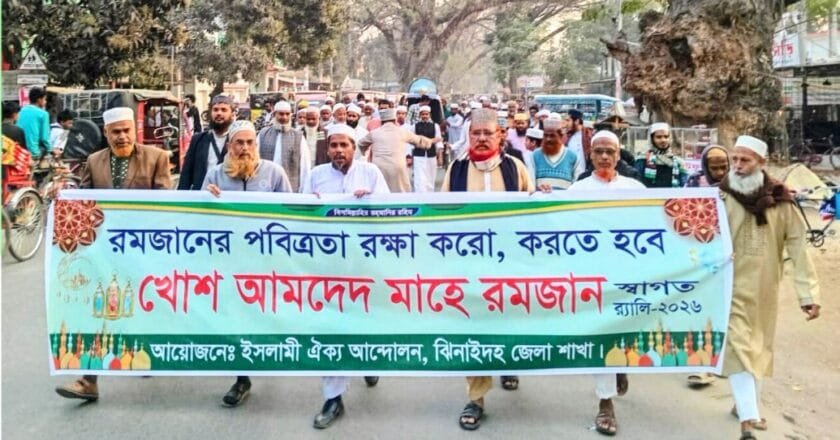 বিসমিল্লাহির রহমানির রহিম
রমজানের পবিত্রতা রক্ষা করো, করতে হবে
খোশ আমদেদ মাহে রমজান
স্বাগত
র‍্যালি-২০২৬
আয়োজনেঃ ইসলামী ঐক্য আন্দোলন, ঝিনাইদহ জেলা শাখা।